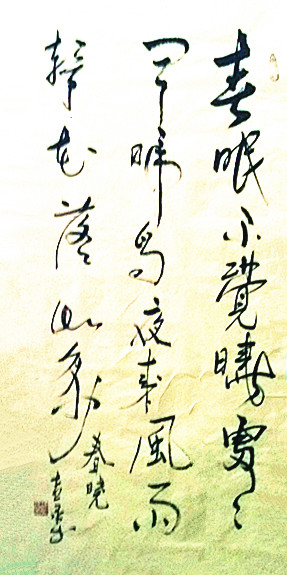 春眠不覺曉處々
聞啼鳥夜来風雨
聲花落知多少
春曉